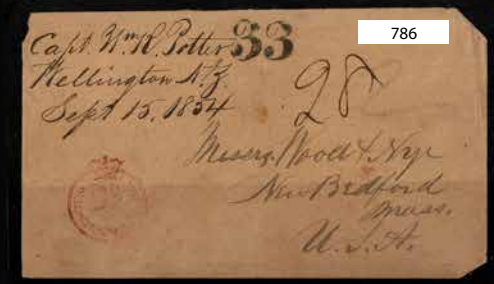 786
Capt. Wm. R. Potter 33
Wellington N.Z.
Sept 15, 1854
28
Messrs. Wood & Nye
New Bedford
Mass.
U.S.A.